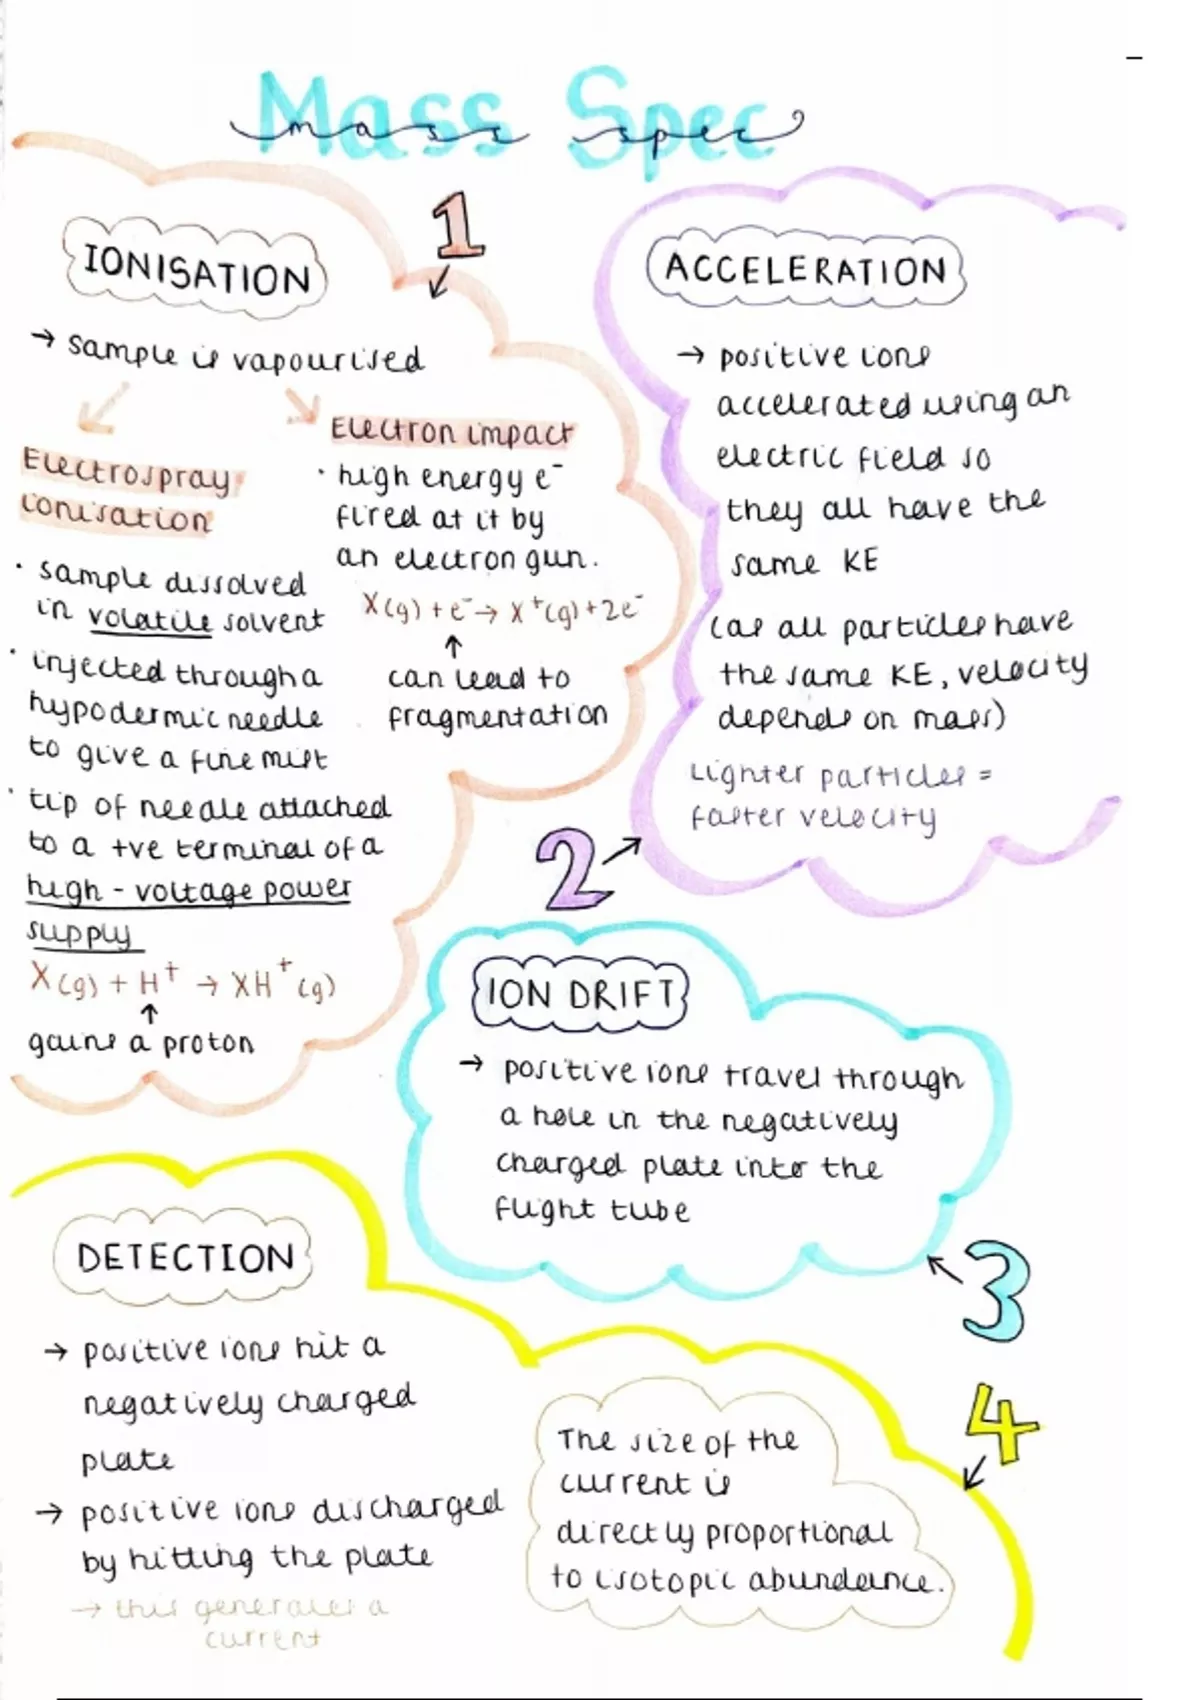 Mass Spec
mass spec
1
IONISATION
→ sample is vapourised
Electrospray
ionisation
· sample dissolved
in volatile solvent
· injected through a
hypodermic needle
to give a fine mist
· tip of needle attached
to a +ve terminal of a
high - voltage power
supply
X(g) + H⁺ → XH⁺(g)
↑
gains a proton
Electron impact
· high energy e⁻
fired at it by
an electron gun.
X(g) + e⁻ → X⁺(g) + 2e⁻
↑
can lead to
fragmentation
2
ACCELERATION
→ positive ions
accelerated using an
electric field so
they all have the
same KE
(as all particles have
the same KE, velocity
depends on mass)
Lighter particles =
faster velocity
3
ION DRIFT
→ positive ions travel through
a hole in the negatively
charged plate into the
flight tube
4
DETECTION
→ positive ions hit a
negatively charged
plate
→ positive ions discharged
by hitting the plate
→ this generates a
current
The size of the
current is
directly proportional
to isotopic abundance.